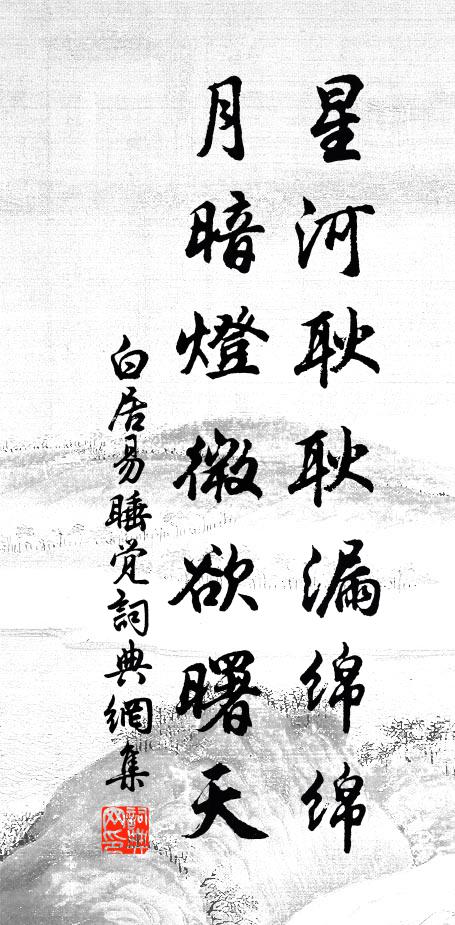 星河耿耿漏绵绵
月暗燈微欲曙天
白居易睡觉詞典網集